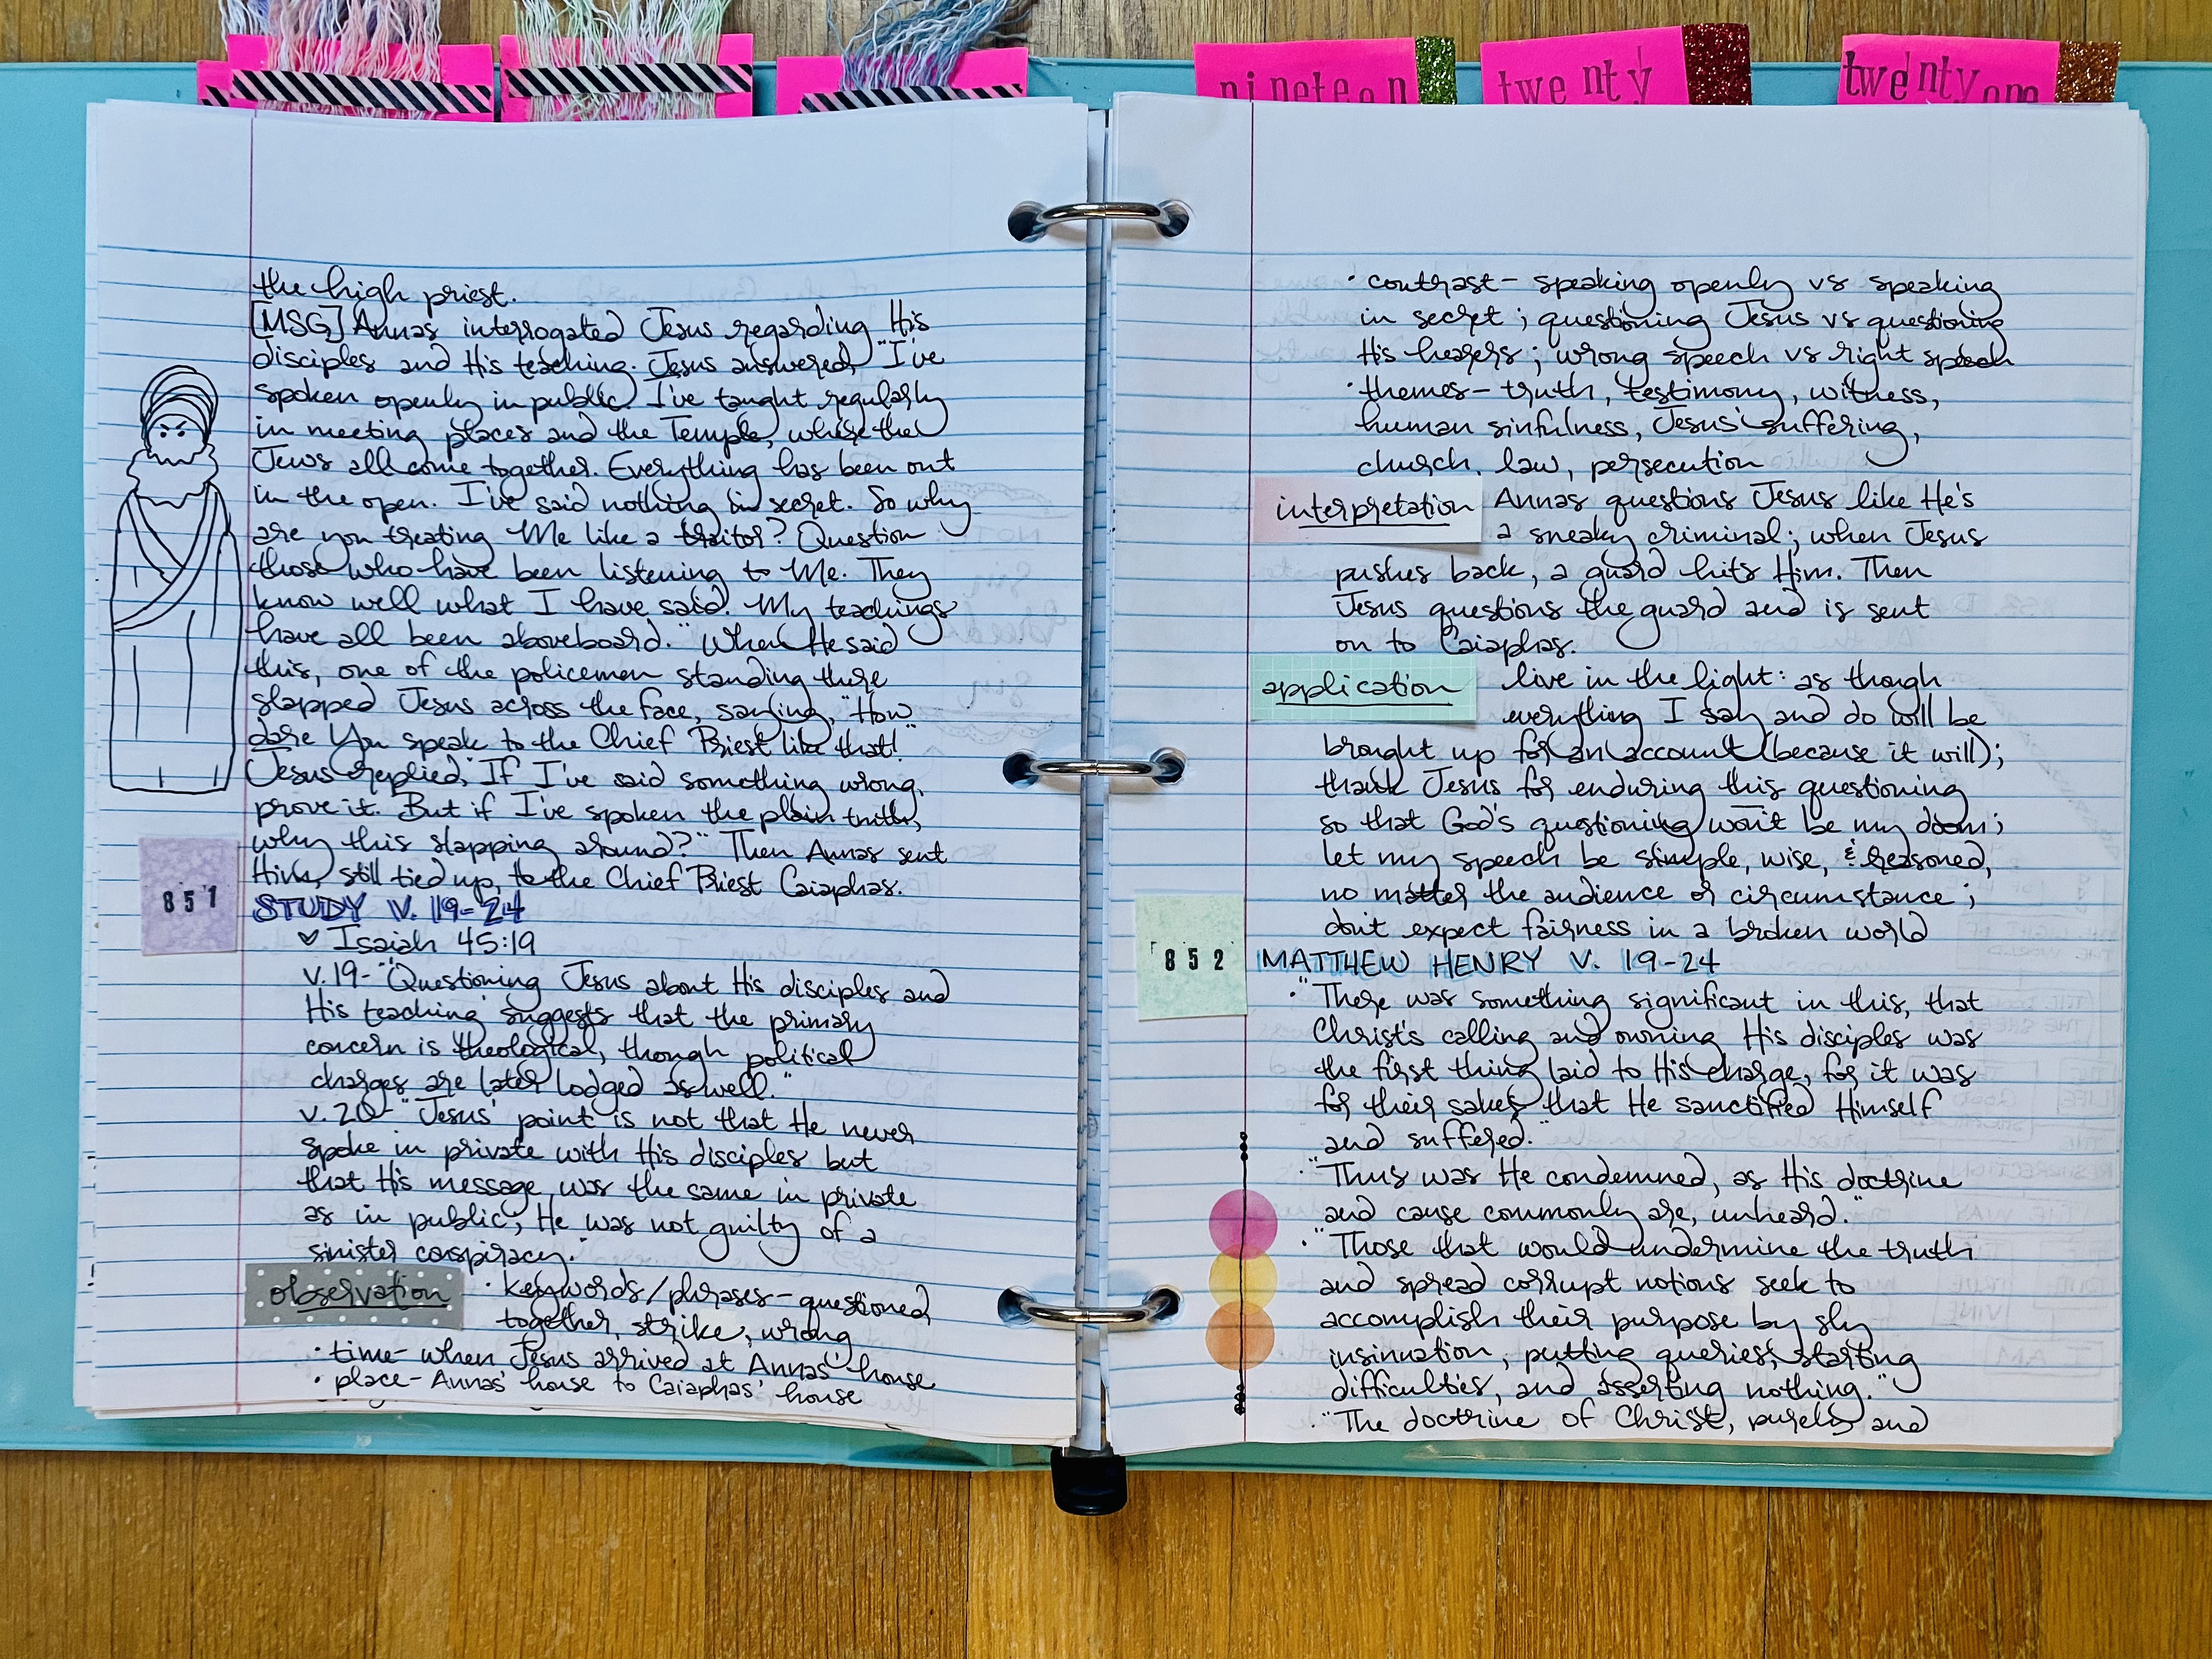 nineteen
twenty
twenty one
the high priest.
[MSG] Annas interrogated Jesus regarding His
disciples and His teaching. Jesus answered, "I've
spoken openly in public. I've taught regularly
in meeting places and the Temple, where the
Jews all come together. Everything has been out
in the open. I've said nothing in secret. So why
are you treating Me like a traitor? Question
those who have been listening to Me. They
know well what I have said. My teachings
have all been aboveboard." When He said
this, one of the policemen standing there
slapped Jesus across the face, saying, "How
dare You speak to the Chief Priest like that!"
Jesus replied, "If I've said something wrong,
prove it. But if I've spoken the plain truth,
why this slapping around?" Then Annas sent
Him, still tied up, to the Chief Priest Caiaphas.
851
STUDY V. 19-24
♡ Isaiah 45:19
v. 19- "Questioning Jesus about His disciples and
His teaching suggests that the primary
concern is theological, though political
charges are later lodged as well."
v. 20- "Jesus' point is not that He never
spoke in private with His disciples but
that His message was the same in private
as in public; He was not guilty of a
sinister conspiracy."
observation
· keywords/phrases- questioned,
together, strike, wrong
· time- when Jesus arrived at Annas' house
· place- Annas' house to Caiaphas' house
· contrast- speaking openly vs speaking
in secret; questioning Jesus vs questioning
His hearers; wrong speech vs right speech
· themes- truth, testimony, witness,
human sinfulness, Jesus' suffering,
church, law, persecution
interpretation
Annas questions Jesus like He's
a sneaky criminal; when Jesus
pushes back, a guard hits Him. Then
Jesus questions the guard and is sent
on to Caiaphas.
application
live in the light: as though
everything I say and do will be
brought up for an account (because it will);
thank Jesus for enduring this questioning
so that God's questioning won't be my doom;
let my speech be simple, wise, & reasoned,
no matter the audience or circumstance;
don't expect fairness in a broken world
852
MATTHEW HENRY V. 19-24
· "There was something significant in this, that
Christ's calling and owning His disciples was
the first thing laid to His charge, for it was
for their sakes that He sanctified Himself
and suffered."
· "Thus was He condemned, as His doctrine
and cause commonly are, unheard."
· "Those that would undermine the truth
and spread corrupt notions seek to
accomplish their purpose by sly
insinuation, putting queries, starting
difficulties, and asserting nothing."
· "The doctrine of Christ, purely and